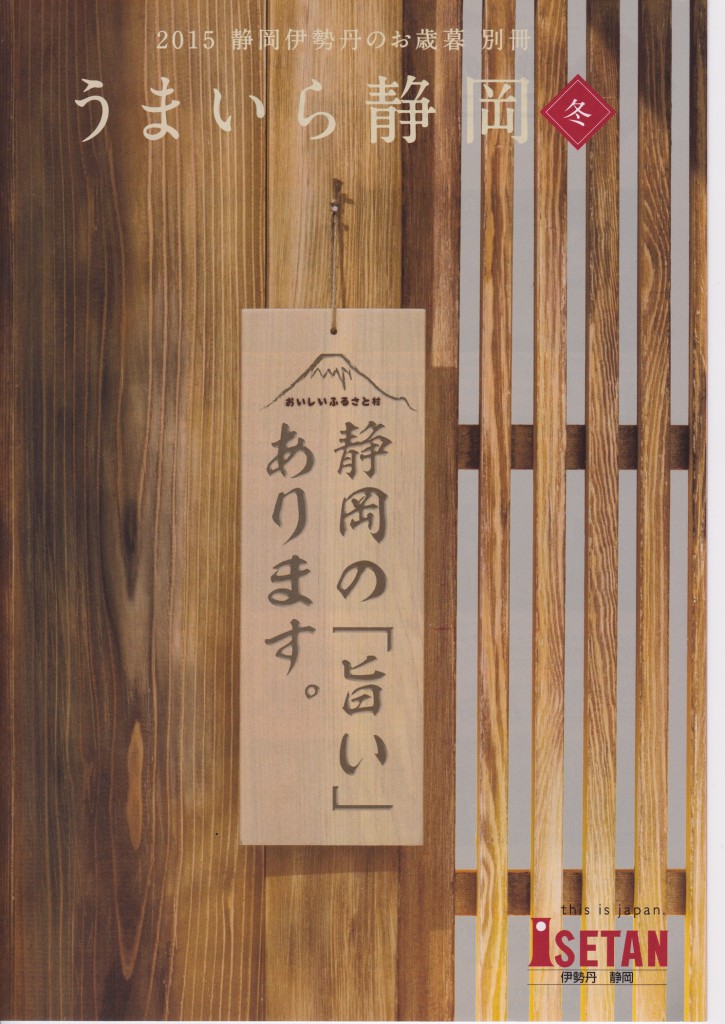 2015 静岡伊勢丹のお歳暮 別冊
うまいら静岡 冬
おいしいふるさと村
静岡の「旨い」
あります。
this is japan.
ISETAN
伊勢丹 静岡